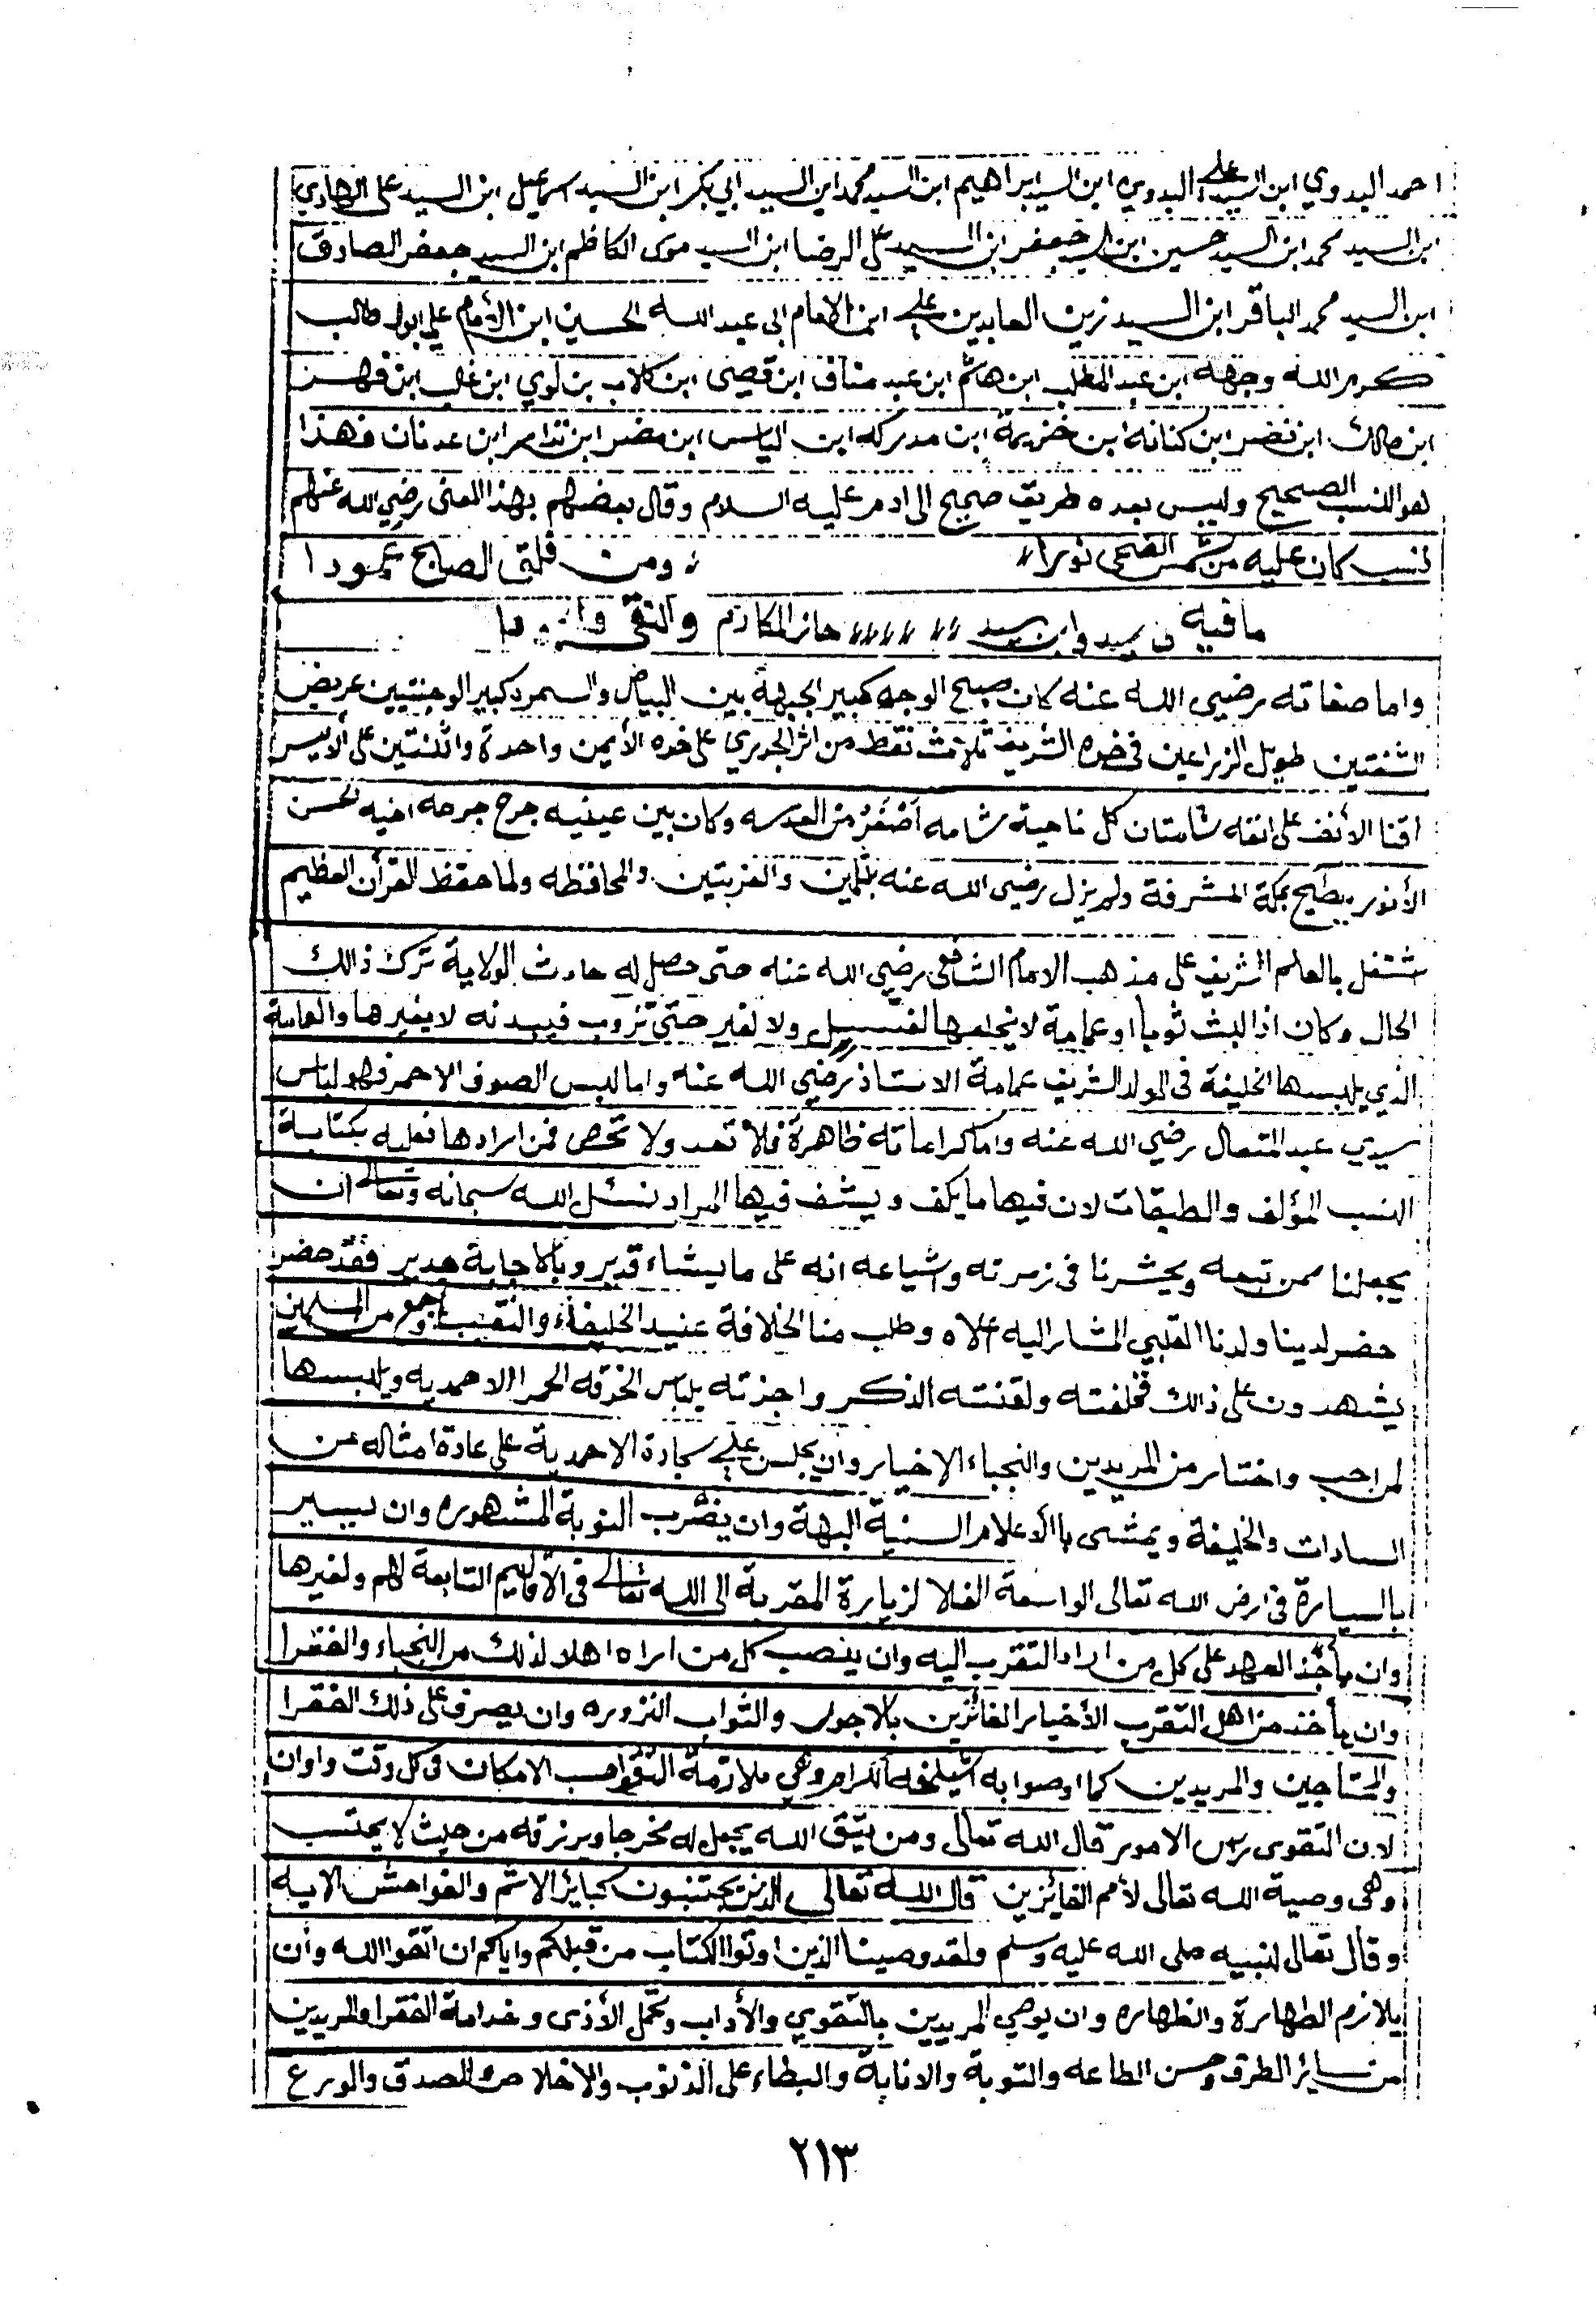 احمد البدوي ابن السيد علي البدوي ابن السيد ابراهيم ابن السيد محمد ابن السيد ابي بكر ابن السيد اسماعيل ابن السيد على الهادي
ابن السيد محمد ابن السيد حسين ابن السيد جعفر ابن السيد على الرضا ابن السيد موسى الكاظم ابن السيد جعفر الصادق
ابن السيد محمد الباقر ابن السيد زين العابدين علي ابن الامام ابى عبد الله الحسين ابن الأمام علي ابو طالب
كرم الله وجهه ابن عبد المطلب ابن هاشم ابن عبد مناف ابن قصى ابن كلاب بن لوي ابن غلب ابن فهر
ابن مالك ابن نضر ابن كنانه ابن خزيمة ابن مدركه ابن الياس ابن مضر ابن نزار ابن عدنان فهذا
هو النسب الصحيح وليس بعده طريق صحيح الى ادم عليه السلام وقال بعضهم بهذا المعنى رضي الله عنهم
نسب كان عليه من شمس الضحى نورا ومن فلق الصباح عمودا
ما فيه سيد وابن سيد حاز المكارم والتقى
واما صفاته رضي الله عنه كان صبيح الوجه كبير الجبهة بين البياض والسمرد كبير الوجنتين عريض
الشفتين طويل الزراعين في خده الشريف ثلاث نقط من اثر الجدري على خده الأيمن واحدة واثنتين على الأيسر
اقنا الأنف على انفه شامتان كل ناحية شامه أصغر من العدسه وكان بين عينيه جرح جرحه اخيه الحسن
الأنور ببطيح بمكة المشرفة ولم يزل رضي الله عنه والمحافظه ولما حفظ القرآن العظيم
شتغل بالعلم الشريف على مذهب الامام الشافعى رضي الله عنه حتى حصل له حادث الولاية ترك ذالك
الحال وكان اذا لبث ثوبا او عمامة لا يخلعها لغسيل ولا لغير حتى تزوب فيبدنه لا يغيرها والعامة
الذي يلبسها الخليفة فى المولد الشريف عمامة الاستاذ رضي الله عنه واما لبس الصوف الاحمر فهو لباس
سيدي عبد المتعال رضي الله عنه واما كراماته ظاهرة فلا تعد ولا تحص فمن ارادها فعليه بكتابة
النسب المؤلف والطبقات لان فيها ما يكف ويشف فيها المراد نسئل الله سبحانه وتعالى ان
يجعلنا ممن تبعه ويحشرنا فى زمرته واشياعه انه على ما يشاء قدير وبالاجابة جدير فقد حضر
حضر لدينا ولدنا القلبي المشار اليه اعلاه وطلب منا الخلافة عنيد الخليفة والنقيب وجمع من المسلمين
يشهدون على ذالك فخلفته ولقنته الذكر واجزته بلباس الخرقه الحمرا الاحمديه ويلبسها
لمن احب واختار من المريدين والنجباء الاخيار وان يجلس علي سجادة الاحمدية على عادة امثاله من
السادات والخليفة ويمشى باالأعلام السنية البهة وان يضرب النوبة المشهوره وان يسير
بالسيارة فى ارض الله تعالى الواسعة الفلا لزيارة المقربة الى الله تعالى فى الأقاليم التابعة لهم ولغيرها
وان يأخذ العهد على كل من اراد التقرب اليه وان ينصب كل من اراه اهلا لذلك من النجباء والفقرا
وان يأخذ من اهل التقرب الأخيار الفائزين بالاجور والثواب وان يصرف على ذلك الفقرا
والمحتاجين والمريدين كما اوصوا به اشياخه الكرام وهي ملازمة التقوا حسب الامكان فى كل وقت واوان
لان التقوى رس الامور قال الله تعالى ومن يتق الله يجعل له مخرجا ويرزقه من حيث لا يحتسب
وهى وصية الله تعالى لأمم الفائزين قال الله تعالى الذين يجتنبون كبائر الاثم والفواحش الايه
وقال تعالى لنبيه صلى الله عليه وسلم ولقد وصينا الذين اوتوا الكتاب من قبلكم واياكم ان اتقوا الله وان
يلازم الطهارة والظهاره وان يوصي المريدين بالتقوي والأداب وتحمل الأذى وخدامة الفقرا والمريدين
من سائر الطرق وحسن الطاعه والتوبة والانابة والبطاء على الذنوب والاخلاص والصدق والورع
٢١٣